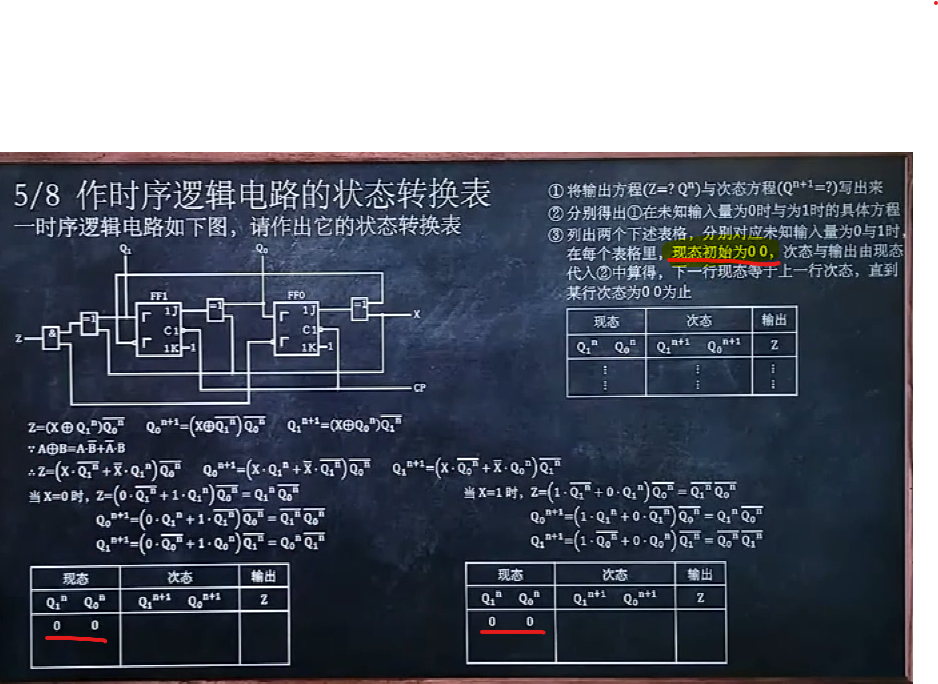 5/8 作时序逻辑电路的状态转换表
一时序逻辑电路如下图，请作出它的状态转换表
① 将输出方程(Z=? Qⁿ)与次态方程(Qⁿ⁺¹=?)写出来
② 分别得出①在未知输入量为0时与为1时的具体方程
③ 列出两个下述表格，分别对应未知输入量为0与1时，
在每个表格里，现态初始为0 0，次态与输出由现态
代入②中算得，下一行现态等于上一行次态，直到
某行次态为0 0为止
现态 次态 输出
Q₁ⁿ Q₀ⁿ Q₁ⁿ⁺¹ Q₀ⁿ⁺¹ Z
⋮ ⋮ ⋮
⋮ ⋮ ⋮
Q₁ Q₀
FF1 FF0
=1 1J =1 1J =1 X
Z & C1 C1
1K 1 1K 1
CP
Z=(X⊕Q₁ⁿ)Q̅₀ⁿ̅ Q₀ⁿ⁺¹=(X⊕Q̅₁ⁿ̅)Q̅₀ⁿ̅ Q₁ⁿ⁺¹=(X⊕Q₀ⁿ)Q̅₁ⁿ̅
∵ A⊕B=A·B̅+A̅·B
∴ Z=(X·Q̅₁ⁿ̅+X̅·Q₁ⁿ)Q̅₀ⁿ̅ Q₀ⁿ⁺¹=(X·Q₁ⁿ+X̅·Q̅₁ⁿ̅)Q̅₀ⁿ̅ Q₁ⁿ⁺¹=(X·Q̅₀ⁿ̅+X̅·Q₀ⁿ)Q̅₁ⁿ̅
当X=0时，Z=(0·Q̅₁ⁿ̅+1·Q₁ⁿ)Q̅₀ⁿ̅=Q₁ⁿQ̅₀ⁿ̅
Q₀ⁿ⁺¹=(0·Q₁ⁿ+1·Q̅₁ⁿ̅)Q̅₀ⁿ̅=Q̅₁ⁿ̅Q̅₀ⁿ̅
Q₁ⁿ⁺¹=(0·Q̅₀ⁿ̅+1·Q₀ⁿ)Q̅₁ⁿ̅=Q₀ⁿQ̅₁ⁿ̅
现态 次态 输出
Q₁ⁿ Q₀ⁿ Q₁ⁿ⁺¹ Q₀ⁿ⁺¹ Z
0 0
当X=1时，Z=(1·Q̅₁ⁿ̅+0·Q₁ⁿ)Q̅₀ⁿ̅=Q̅₁ⁿ̅Q̅₀ⁿ̅
Q₀ⁿ⁺¹=(1·Q₁ⁿ+0·Q̅₁ⁿ̅)Q̅₀ⁿ̅=Q₁ⁿQ̅₀ⁿ̅
Q₁ⁿ⁺¹=(1·Q̅₀ⁿ̅+0·Q₀ⁿ)Q̅₁ⁿ̅=Q̅₀ⁿ̅Q̅₁ⁿ̅
现态 次态 输出
Q₁ⁿ Q₀ⁿ Q₁ⁿ⁺¹ Q₀ⁿ⁺¹ Z
0 0